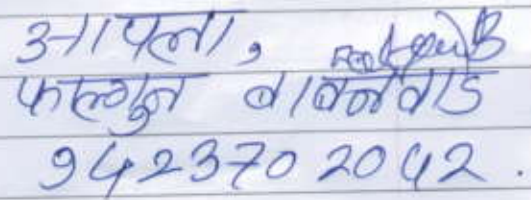 आपला,
फाल्गुन बावनवाडे
9423702042.